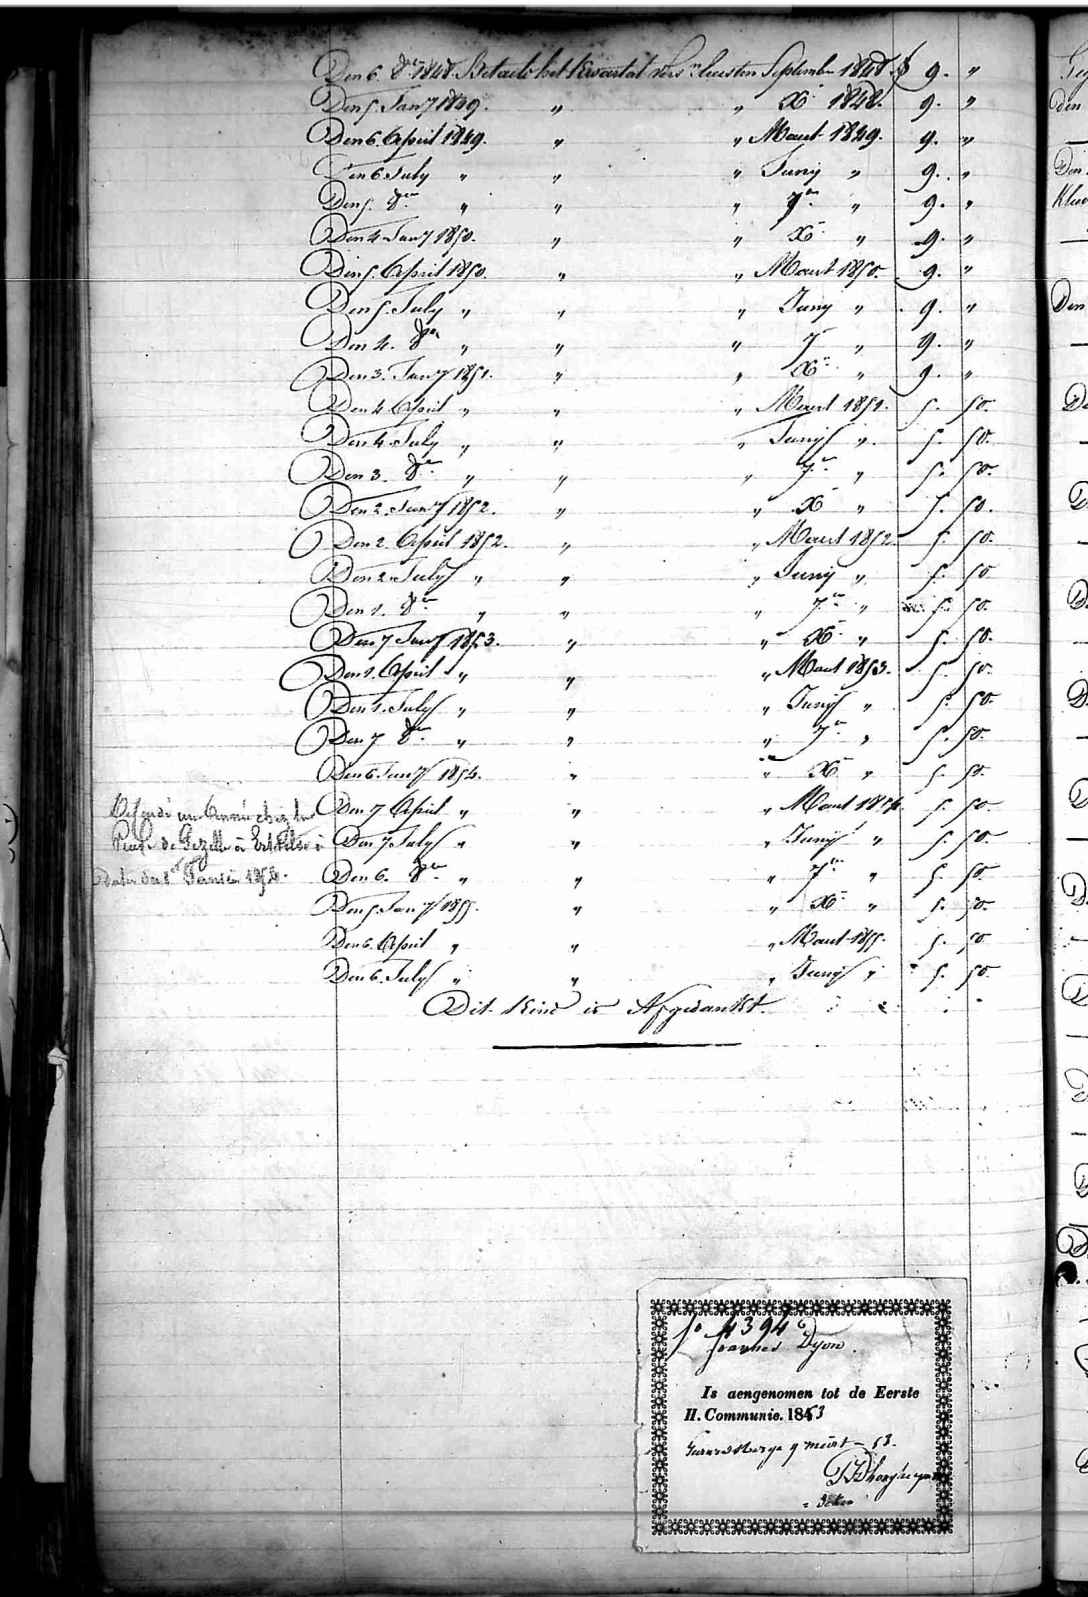 Den 6. 8er 1848. Betaelt het Kwartael Septembr 1848. f 9. "
Den 5. Jan7 1849. " " Xr 1848. 9. "
Den 6. April 1849. " " Maart 1849. 9. "
Den 6 July " " " Juny " 9. "
Den 5. 8er " " " 7er " 9. "
Den 4 Jan7 1850. " " Xr " 9. "
Den 5. April 1850. " " Maart 1850. 9. "
Den 5. July " " " Juny " 9. "
Den 4. 8er " " " 7r " 9. "
Den 3. Jan7 1851. " " Xr " 9. "
Den 4 April " " " Maart 1851. 5. 50.
Den 4 July " " " Juny " 5. 50.
Den 3. 8er " " " 7er " 5. 50.
Den 2. Jan7 1852. " " Xr " 5. 50.
Den 2. April 1852. " " Maart 1852. 5. 50.
Den 2 July " " " Juny " 5. 50
Den 1. 8er " " " 7er " 5. 50.
Den 7 Jan7 1853. " " Xr " 5. 50.
Den 1. April " " " Maart 1853. 5. 50.
Den 1. July " " " Juny " 5. 50.
Den 7 8er " " " 7er " 5. 50.
Den 6 Jan7 1854. " " Xr " 5. 50.
Den 7 April " " " Maart 1854. 5. 50.
Den 7 July " " " Juny " 5. 50.
Den 6. 8er " " " 7er " 5. 50
Den 5. Jan7 1855. " " Xr " 5. 50.
Den 6. April " " " Maart 1855. 5. 50
Den 6. July " " " Juny " 5. 50
Dit Kind is Afgedankt.
un Année chez
de Gezelle à
Janvier
No 4394
Joannes Dyon.
Is aengenomen tot de Eerste
H. Communie. 1853
9 meert - 53.